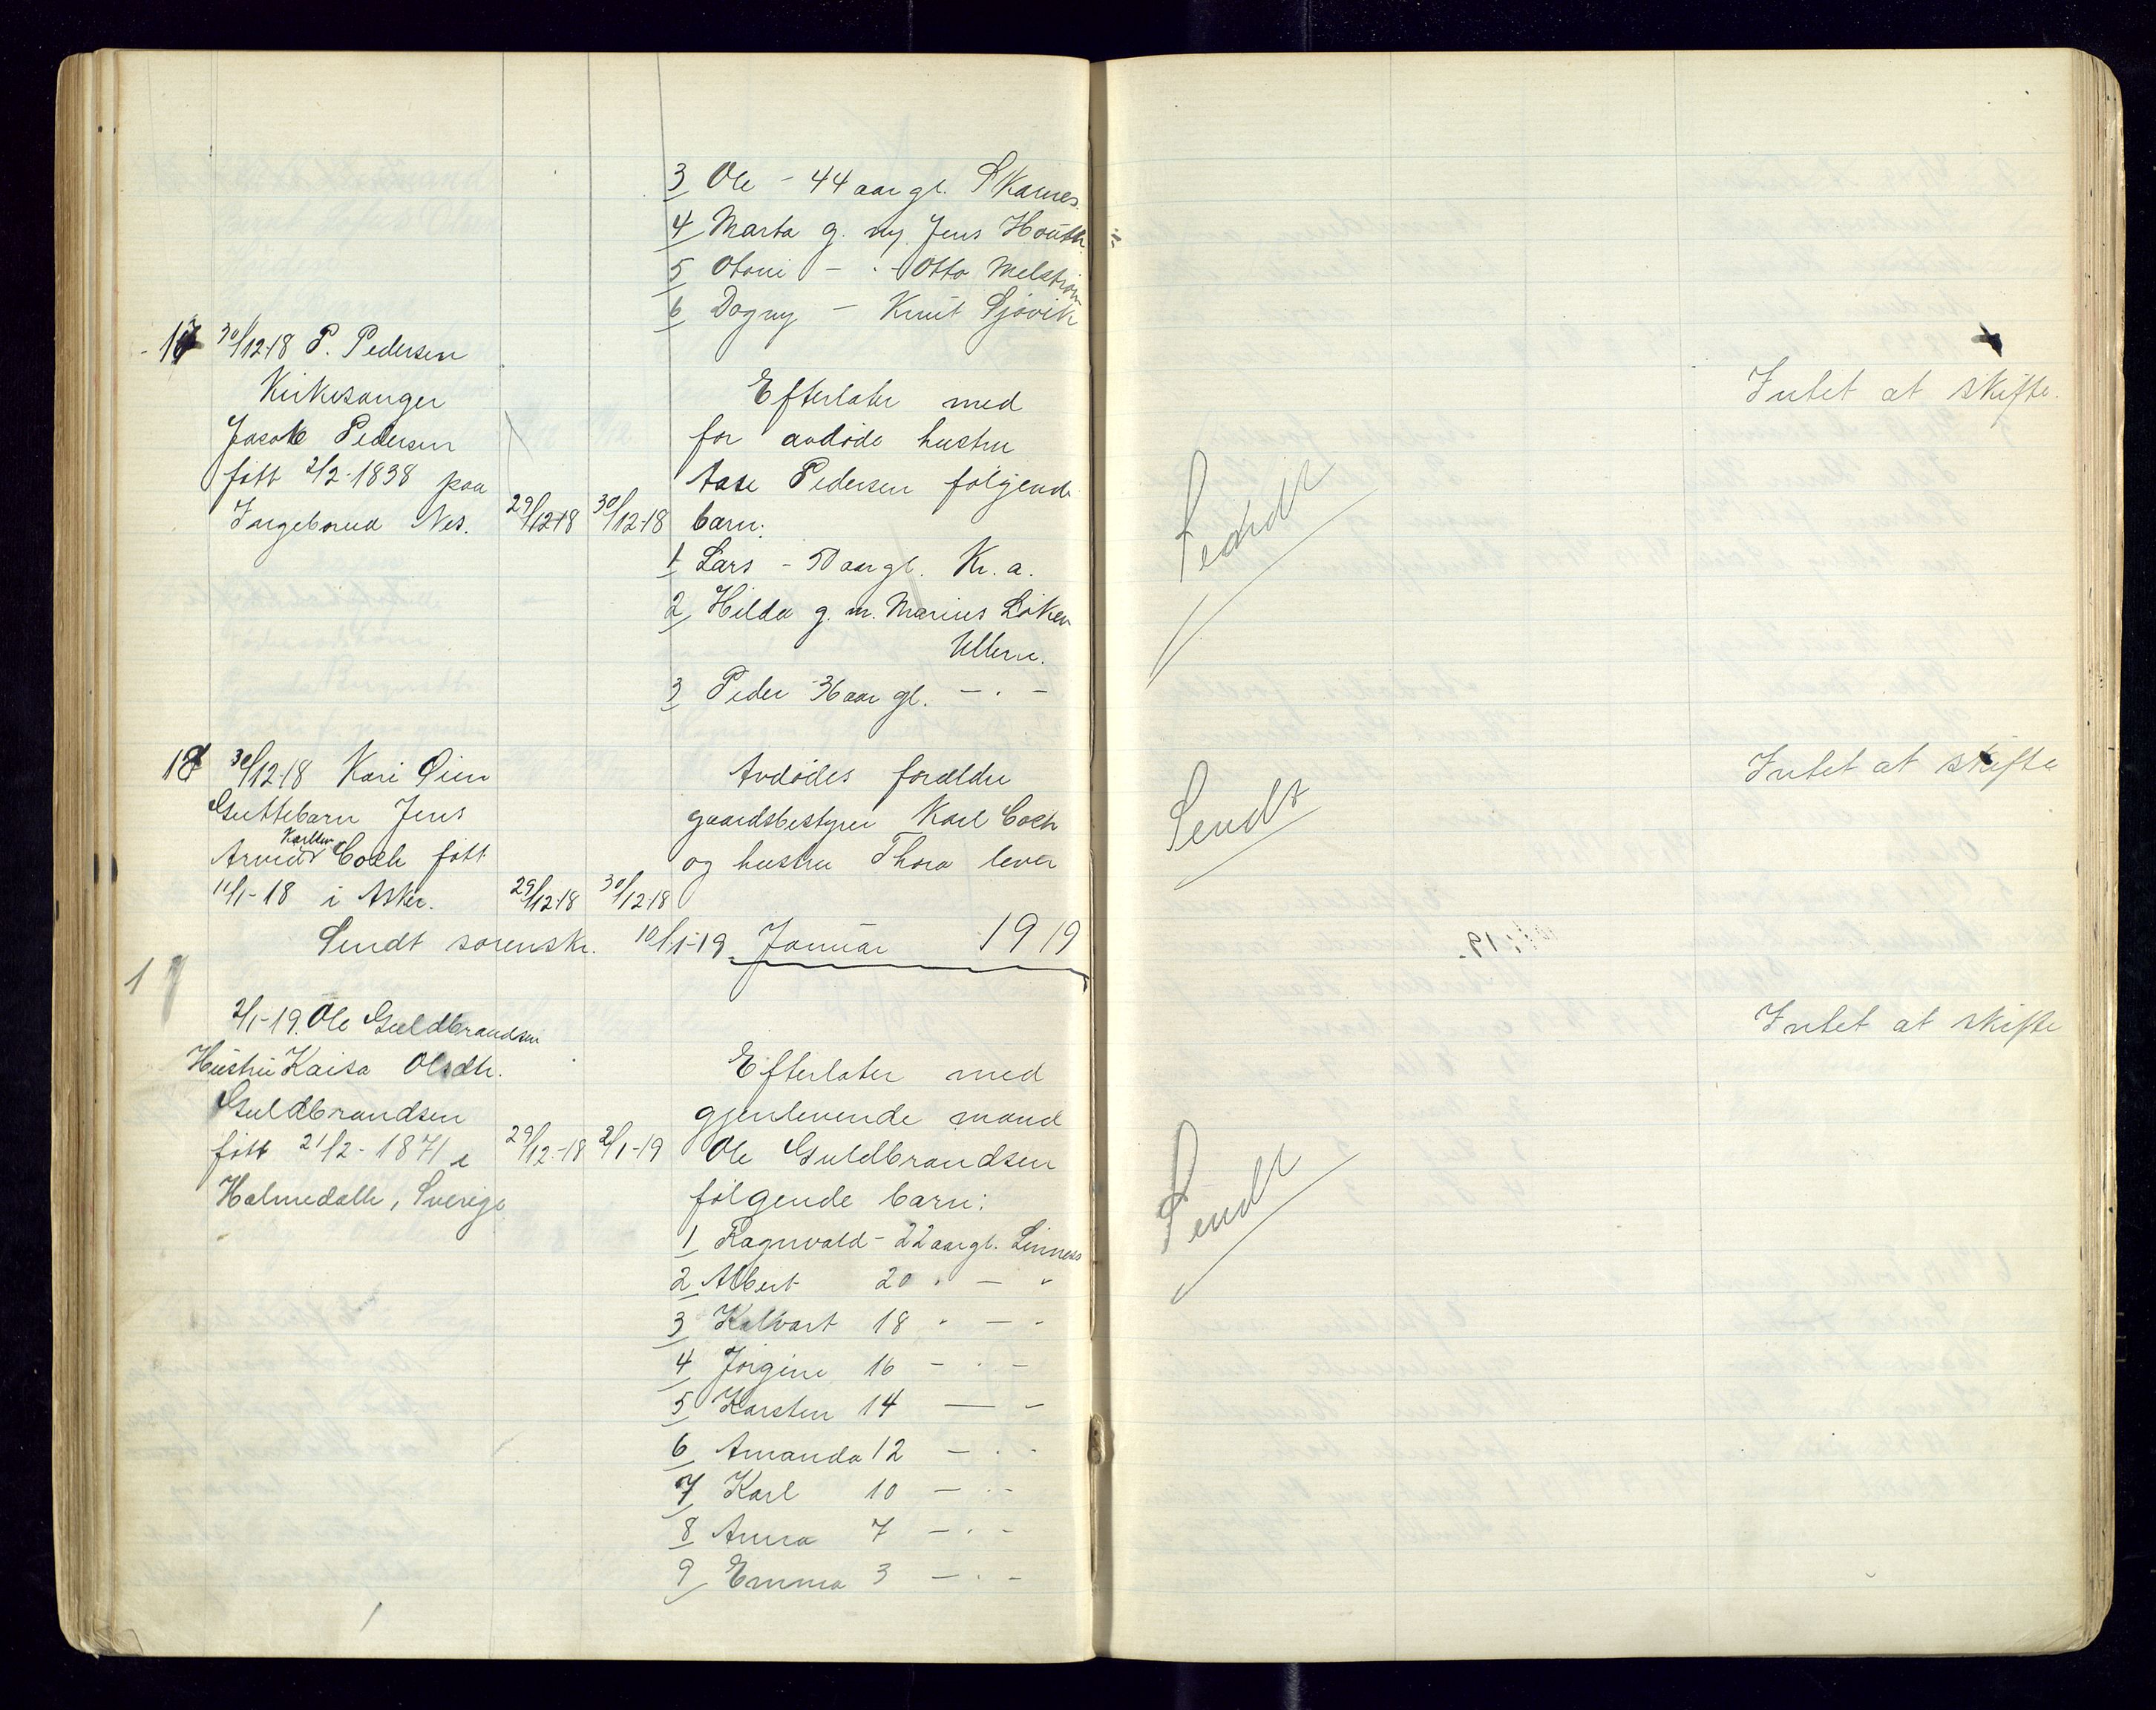 3 Ole - 44 aar gl. Skarnes.
4 Marta g. m. Jens Houth
5 Otoni - - Otto Melström
6 Dagny - Knut Sjövik
17 30/12-18 P. Pedersen
Kirkesanger
Jacob Pedersen
fött 2/2-1838 paa
Ingeborud Nes. 29/12-18 30/12-18
Efterlater med
for avdöde hustru
Aase Pedersen følgende
barn:
1 Lars - 50 aar gl. Kr. a.
2 Hilda g. m. Marius Löken
Ullern.
3 Peder 36 aar gl. - . -
Intet at skifte.
Sendt
18 30/12-18 Kari Öien
Guttebarn Jens
Karlsen
Arvid Coch fött
11/1-18 i Asker. 29/12-18 30/12-18
Avdödes forældre
gaardsbestyrer Karl Coch
og hustru Thora lever
Intet at skifte
Sendt
Sendt sorenskr. 10/1-19. Januar 1919
1
2/1-19. Ole Guldbrandsen
Hustru Kaisa Olsdtr.
Guldbrandsen
fött 21/2-1871 i 29/12-18 2/1-19
Halmedalle, Sverige
Efterlater med
gjenlevende mand
Ole Guldbrandsen
følgende barn:
1 Ragnvald - 22 aar gl. Linnes
2 Albert 20 " - "
3 Halvart 18 " - "
4 Jörgine 16 - . -
5 Karsten 14 — -
6 Amanda 12 - . -
7 Karl 10 - . -
8 Anna 7 - . -
9 Emma 3 - . -
Intet at skifte
Sendt